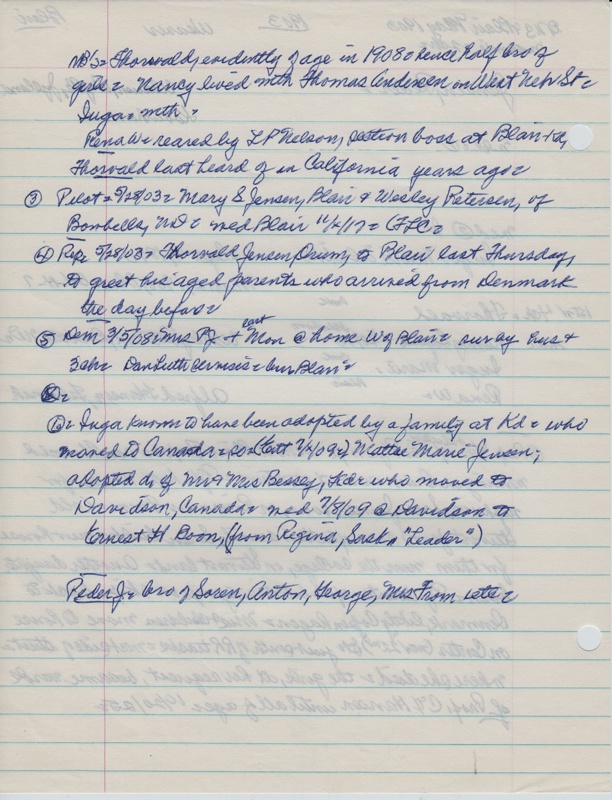 NB's = Thorvald, evidently of age in 1908 = hence half bro of
girls = Nancy lived with Thomas Andersen on West Nebr St =
Inga = mth =
Rena W = reared by L P Nelson, section boss at Blair + Kd,
Thorvald last heard of in California years ago =
③ Pilot = 5/28/03 = Mary S Jensen, Blair & Wesley Petersen, of
Bonbells, ND = med Blair 11/4/17 = CFLC =
④ Rep = 5/28/03 = Thorvald Jensen, Orum, to Blair last Thursday,
to greet his aged parents who arrived from Denmark
the day before =
⑤ Dem 3/5/08 = Mrs PJ + last Mon @ home W of Blair = surv by hus +
3 ch = Dan Luth services = bur Blair =
⑥ = Inga known to have been adopted by a family at Kd = who
moved to Canada = so = (Ent 7/4/09 =) Mattie Marie Jensen,
adopted d, of Mr & Mrs Bessey, Kd = who moved to
Davidson, Canada = med 7/8/09 @ Davidson to
Ernest H Boon, (from Regina, Sask, "Leader")
Peder J = bro of Soren, Anton, George, Mrs From etc =